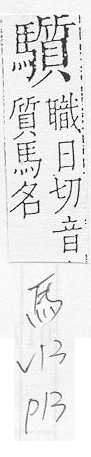 驥
職日切音
質馬名
馬
V13
P13